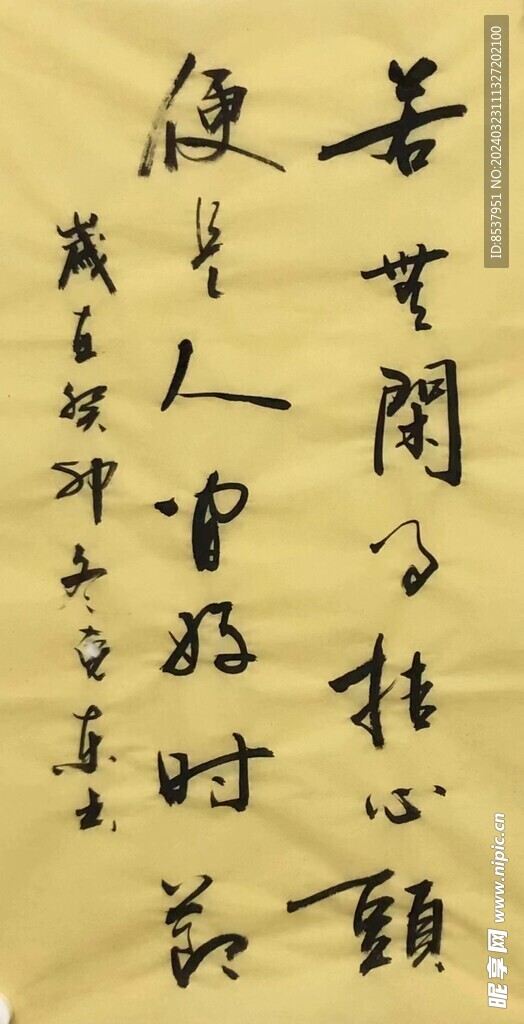 若無閑事挂心頭
便是人間好时節
歲在癸卯冬克東书
ID:8537951 NO:20240323111327202100
昵享网 www.nipic.cn